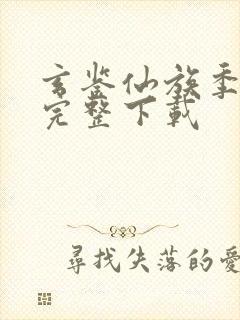 玄鉴仙族季
完整下载
寻找失落的爱